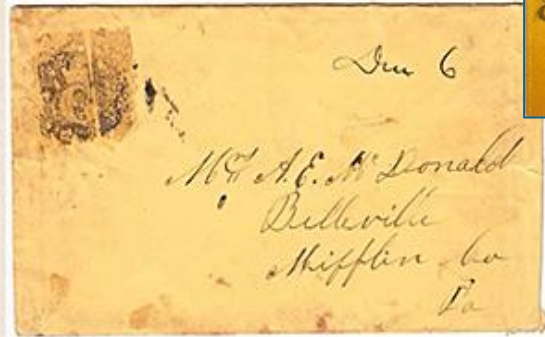 Due 6
A. E. McDonald
Belleville
Mifflin Co
Pa